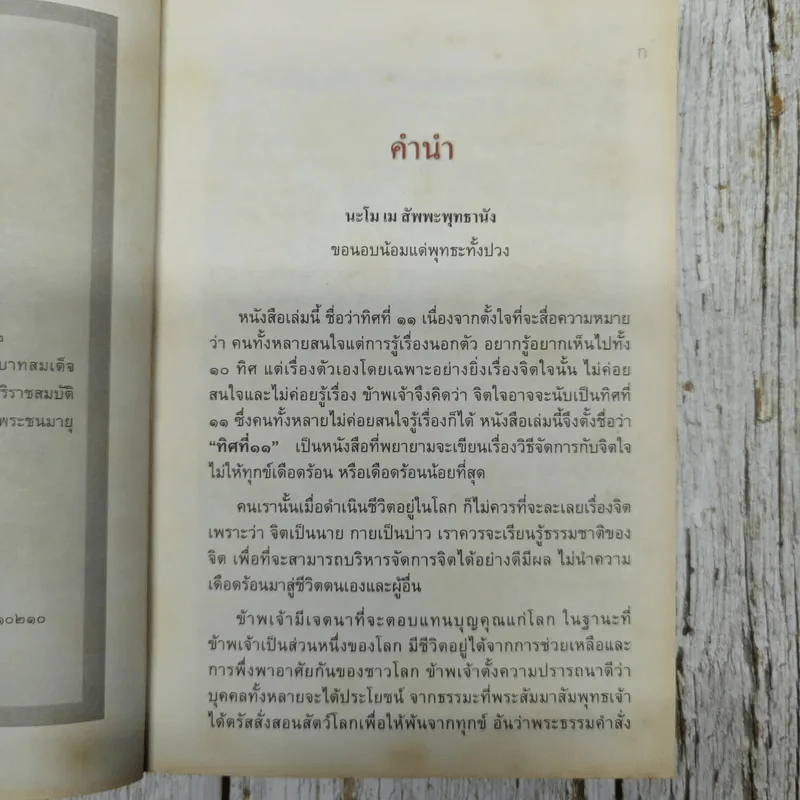 บาทสมเด็จ
ริราชสมบัติ
พระชนมายุ
๑๐๒๑๐
ก
คำนำ
นะโม เม สัพพะพุทธานัง
ขอนอบน้อมแด่พุทธะทั้งปวง
หนังสือเล่มนี้ ชื่อว่าทิศที่ ๑๑ เนื่องจากตั้งใจที่จะสื่อความหมาย
ว่า คนทั้งหลายสนใจแต่การรู้เรื่องนอกตัว อยากรู้อยากเห็นไปทั้ง
๑๐ ทิศ แต่เรื่องตัวเองโดยเฉพาะอย่างยิ่งเรื่องจิตใจนั้น ไม่ค่อย
สนใจและไม่ค่อยรู้เรื่อง ข้าพเจ้าจึงคิดว่า จิตใจอาจจะนับเป็นทิศที่
๑๑ ซึ่งคนทั้งหลายไม่ค่อยสนใจรู้เรื่องก็ได้ หนังสือเล่มนี้จึงตั้งชื่อว่า
“ทิศที่๑๑” เป็นหนังสือที่พยายามจะเขียนเรื่องวิธีจัดการกับจิตใจ
ไม่ให้ทุกข์เดือดร้อน หรือเดือดร้อนน้อยที่สุด
คนเรานั้นเมื่อดำเนินชีวิตอยู่ในโลก ก็ไม่ควรที่จะละเลยเรื่องจิต
เพราะว่า จิตเป็นนาย กายเป็นบ่าว เราควรจะเรียนรู้ธรรมชาติของ
จิต เพื่อที่จะสามารถบริหารจัดการจิตได้อย่างดีมีผล ไม่นำความ
เดือดร้อนมาสู่ชีวิตตนเองและผู้อื่น
ข้าพเจ้ามีเจตนาที่จะตอบแทนบุญคุณแก่โลก ในฐานะที่
ข้าพเจ้าเป็นส่วนหนึ่งของโลก มีชีวิตอยู่ได้จากการช่วยเหลือและ
การพึ่งพาอาศัยกันของชาวโลก ข้าพเจ้าตั้งความปรารถนาดีว่า
บุคคลทั้งหลายจะได้ประโยชน์ จากธรรมะที่พระสัมมาสัมพุทธเจ้า
ได้ตรัสสั่งสอนสัตว์โลกเพื่อให้พ้นจากทุกข์ อันว่าพระธรรมคำสั่ง